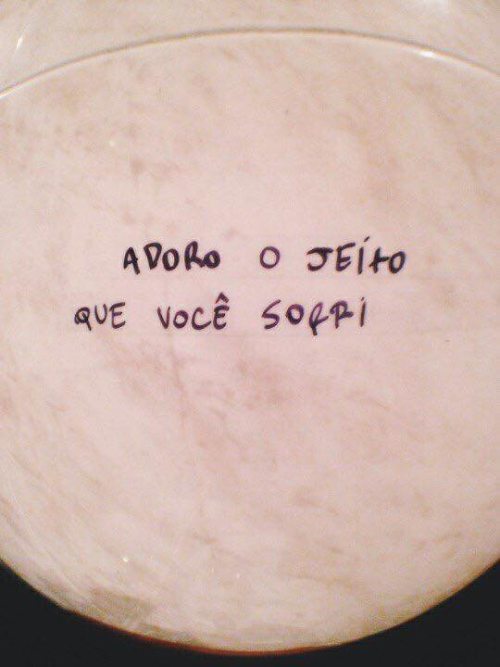 ADORO O JEITO
QUE VOCÊ SORRI